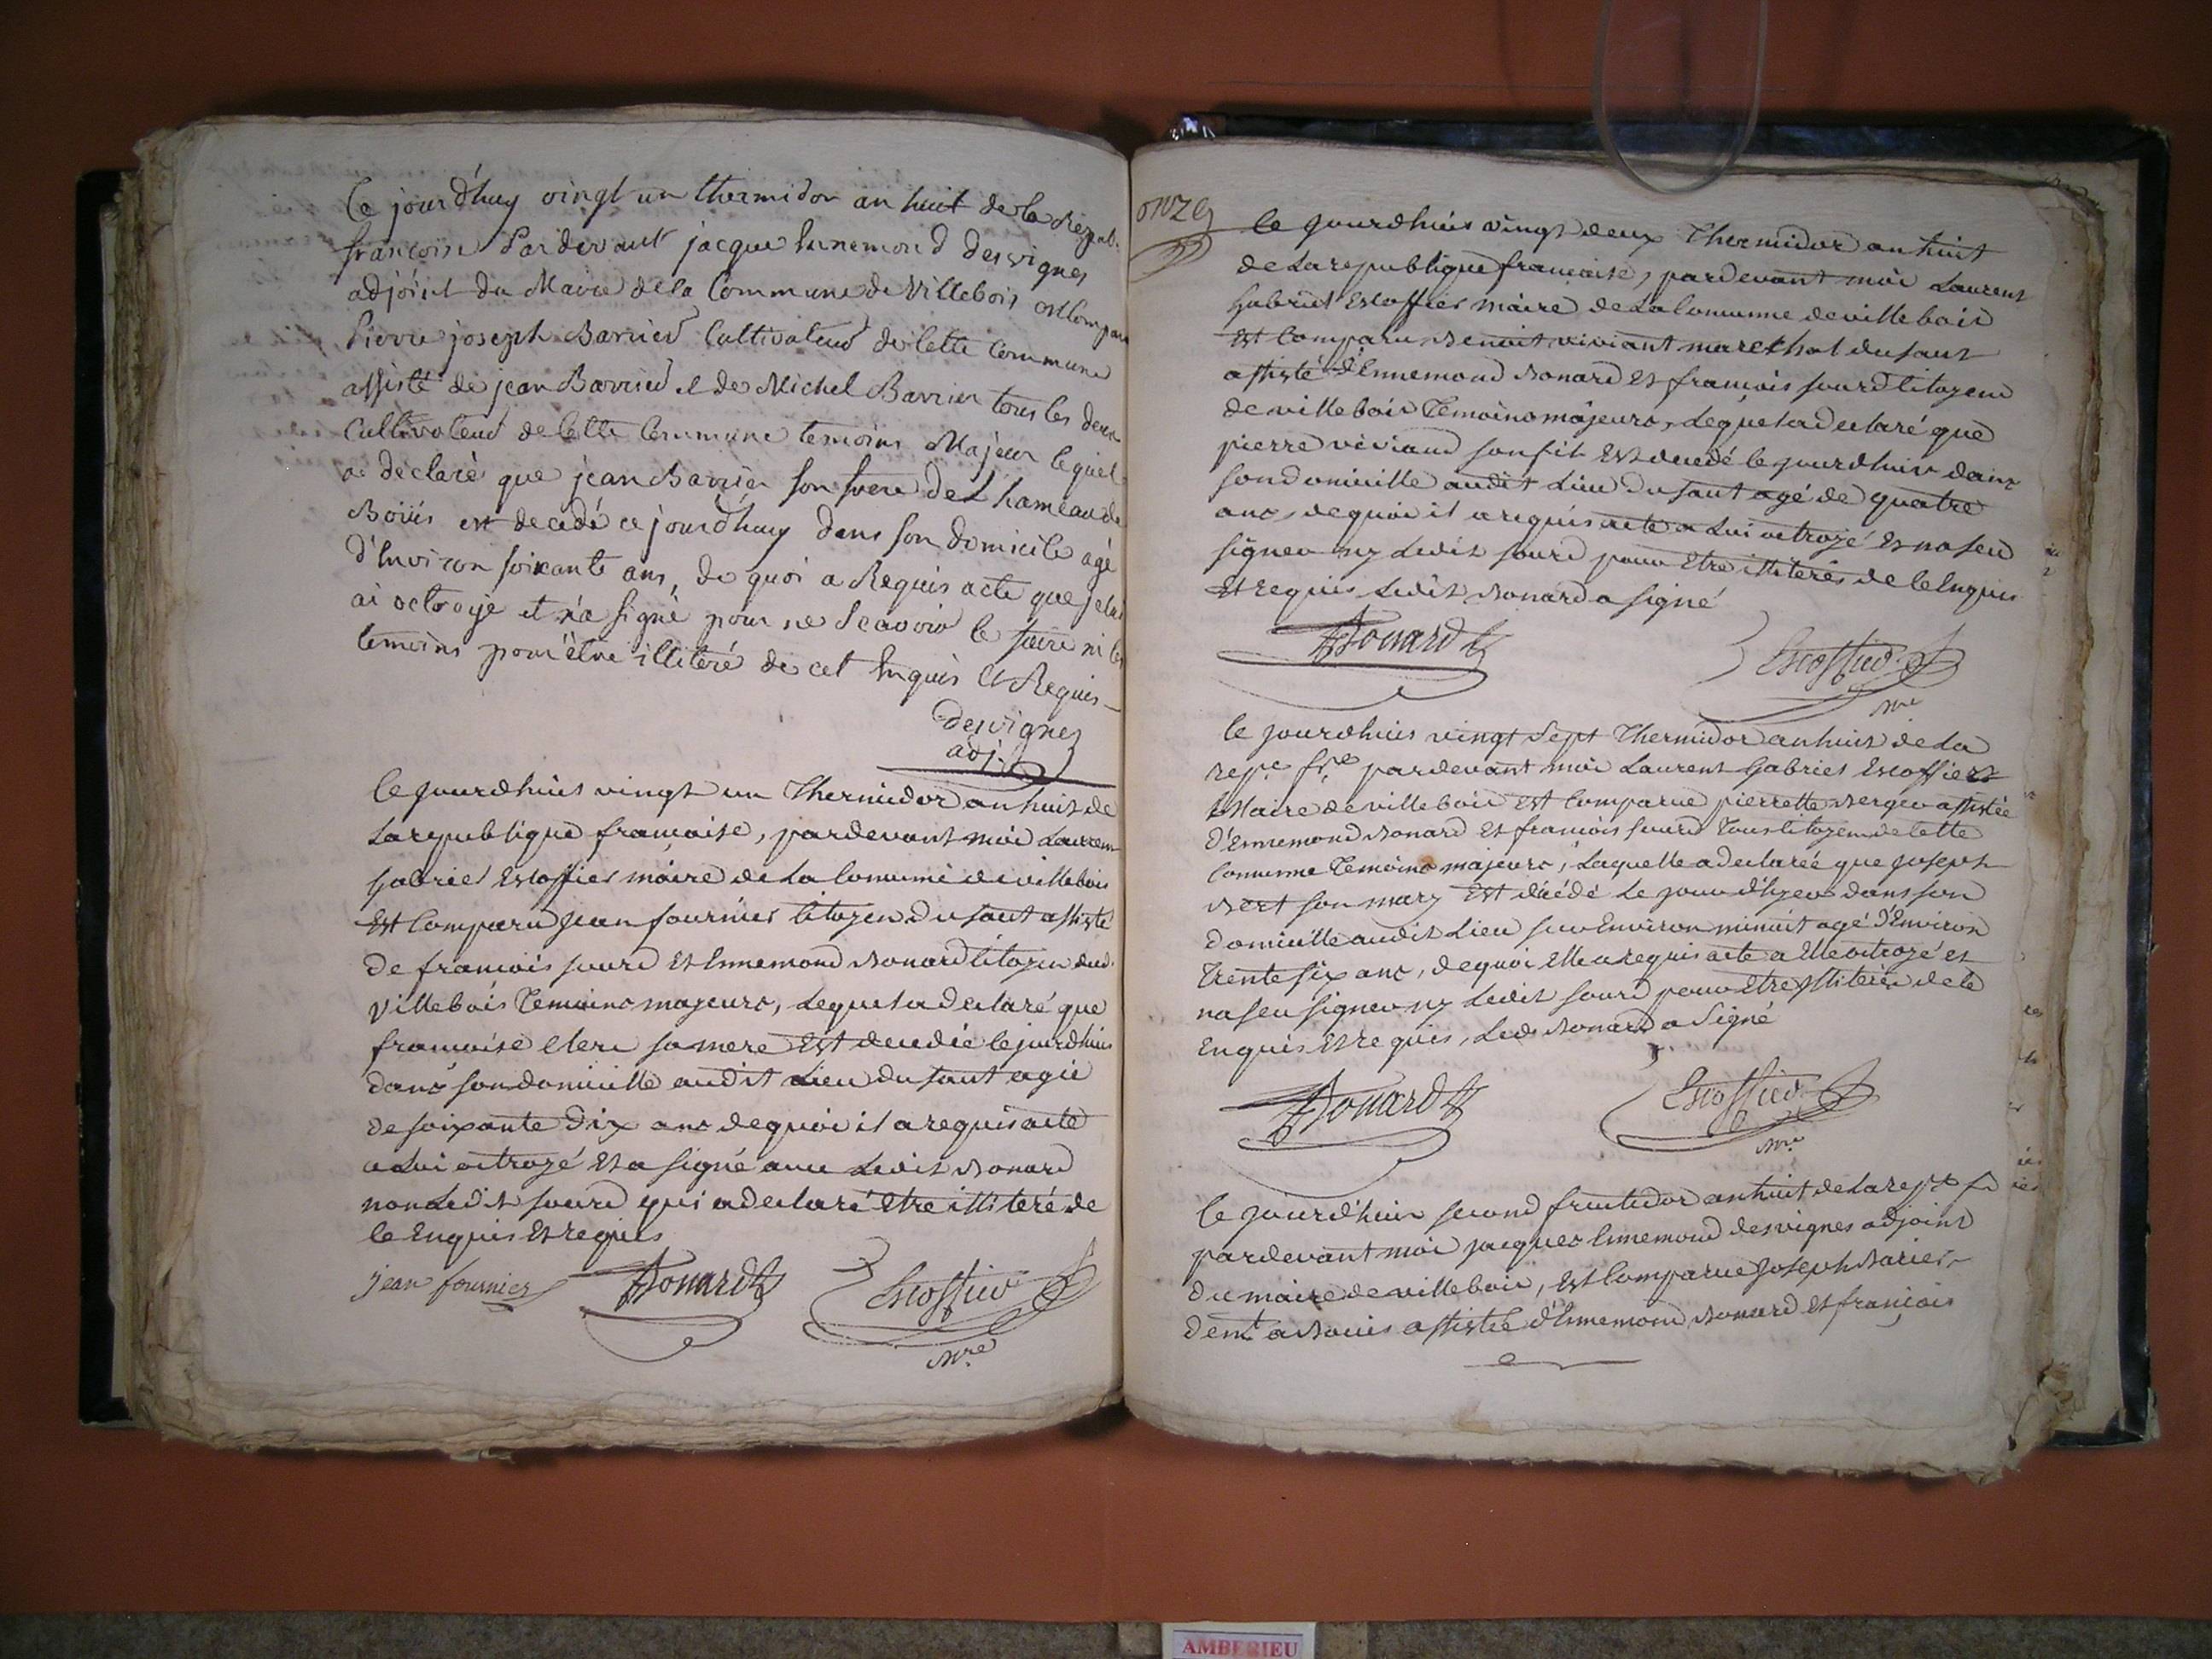 Ce jourd'huy vingt un thermidor an huit de la Repub.
francoise Pardevant jacque Ennemond desvignes
adjoint du Maire de la Commune de Villebois est Comparu
Pierre joseph Barrier Cultivateur de Cette Commune
assisté de jean Barrier et de Michel Barrier tous les deux
Cultivateur de Cette Commune temoins Majeur lequel
a declaré que jean Barrier son frere del hameau de
Boüis est decedé ce jourd'huy dans son domicile agé
d'Environ soixante ans, de quoi a Requis acte que je lui
ai octroyé et n'a signé pour ne Scavoir le faire ni les
temoins pour être illiteré de cet Enquis et Requis
desvignes
adj.
Ce jourdhuis vingt un Thermidor an huit de
La republique francaise, pardevant moi Laurent
Gabriel Escoffier maire de La Comune de villebois
Est Comparu Jean fournier Citoyen du Saut assisté
de francois sourd Et Ennemond Bonard Citoyen dud.
Villebois Temoins majeurs, Lequel a declaré que
francoise Clerc sa mere Est decedée Cejourdhuis
dans son domicille audit Lieu du Saut agée
de soixante dix ans de quoi il a requis acte
a Lui octroyé Et a signé avec Ledit Bonard
non Ledit sourd qui a declaré Etre illiteré de
Ce Enquis Et requis
jean fournier Bonard Escoffier
mre
onze
Ce jourdhuis vingt deux Thermidor an huit
de La republique francaise, pardevant moi Laurent
Gabriel Escoffier maire de La Comunne de villebois
Est Comparu Benoit viviant marechal du Saut
assisté d'Ennemond Bonard Et francois sourd Citoyens
de villebois Temoins majeurs, Lequel a declaré que
pierre viviand son fils Est decedé Ce jourdhuis dans
son domicille audit Lieu du Saut agé de quatre
ans, de quoi il a requis acte a Lui octroyé Et na seu
signer ny Ledit sourd pour Etre illiterés de Ce Enquis
Et requis Ledit Bonard a signé
Bonard Escoffier
mre
Ce jourdhuis vingt Sept Thermidor an huit de La
repe. fse. pardevant moi Laurent Gabriel Escoffier
Maire de villebois Est Comparue pierrette Berger assistée
d'Ennemond Bonard Et francois sourd Tous Citoyens de Cette
Comunne Temoins majeurs, Laquelle a declareé que Joseph
Bert son mary Est décédé Le jour d'hyer dans son
domicille audit Lieu sur Environ minuit agé d'Environ
Trente six ans, de quoi Elle a requis acte a Elle octroyé et
na seu signer ny Ledit sourd pour Etre illiterés de Ce
Enquis Et requis, Led. Bonard a Signé
Bonard Escoffier
mre
Ce jourdhuis second fructidor an huit de La repe. f
pardevant moi jacques Ennemond desvignes adjoint
du maire de villebois, Est Comparue Joseph Barier
demt a Bouis assistée d'Ennemond Bonard Et francois
AMBERIEU